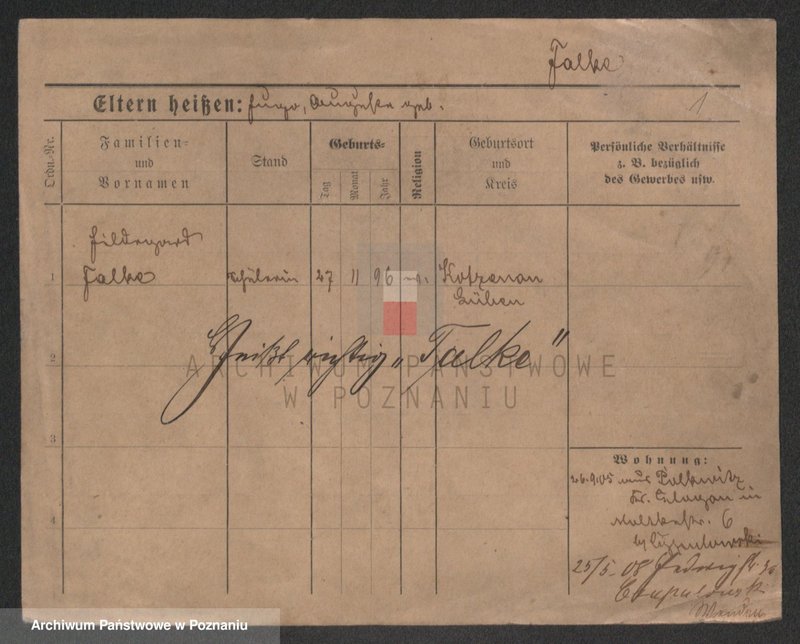 Falke
Eltern heißen: Hugo, Auguste geb.
1
Ordn.-Nr.
Familien-
und
Vornamen
Stand
Geburts-
Tag
Monat
Jahr
Religion
Geburtsort
und
Kreis
Persönliche Verhältnisse
z. B. bezüglich
des Gewerbes usw.
Hildegard
1 Falke Schülerin 27 11 96 ev. Kotzenau
Lüben
2 Heißt richtig „Talke"
ARCHIWUM PAŃSTWOWE
W POZNANIU
3
Wohnung:
26.9.05 aus Polkwitz
Kr. Glogau in
Moltkestr. 6
4
25/5. 08 Hedwigstr.
Archiwum Państwowe w Poznaniu